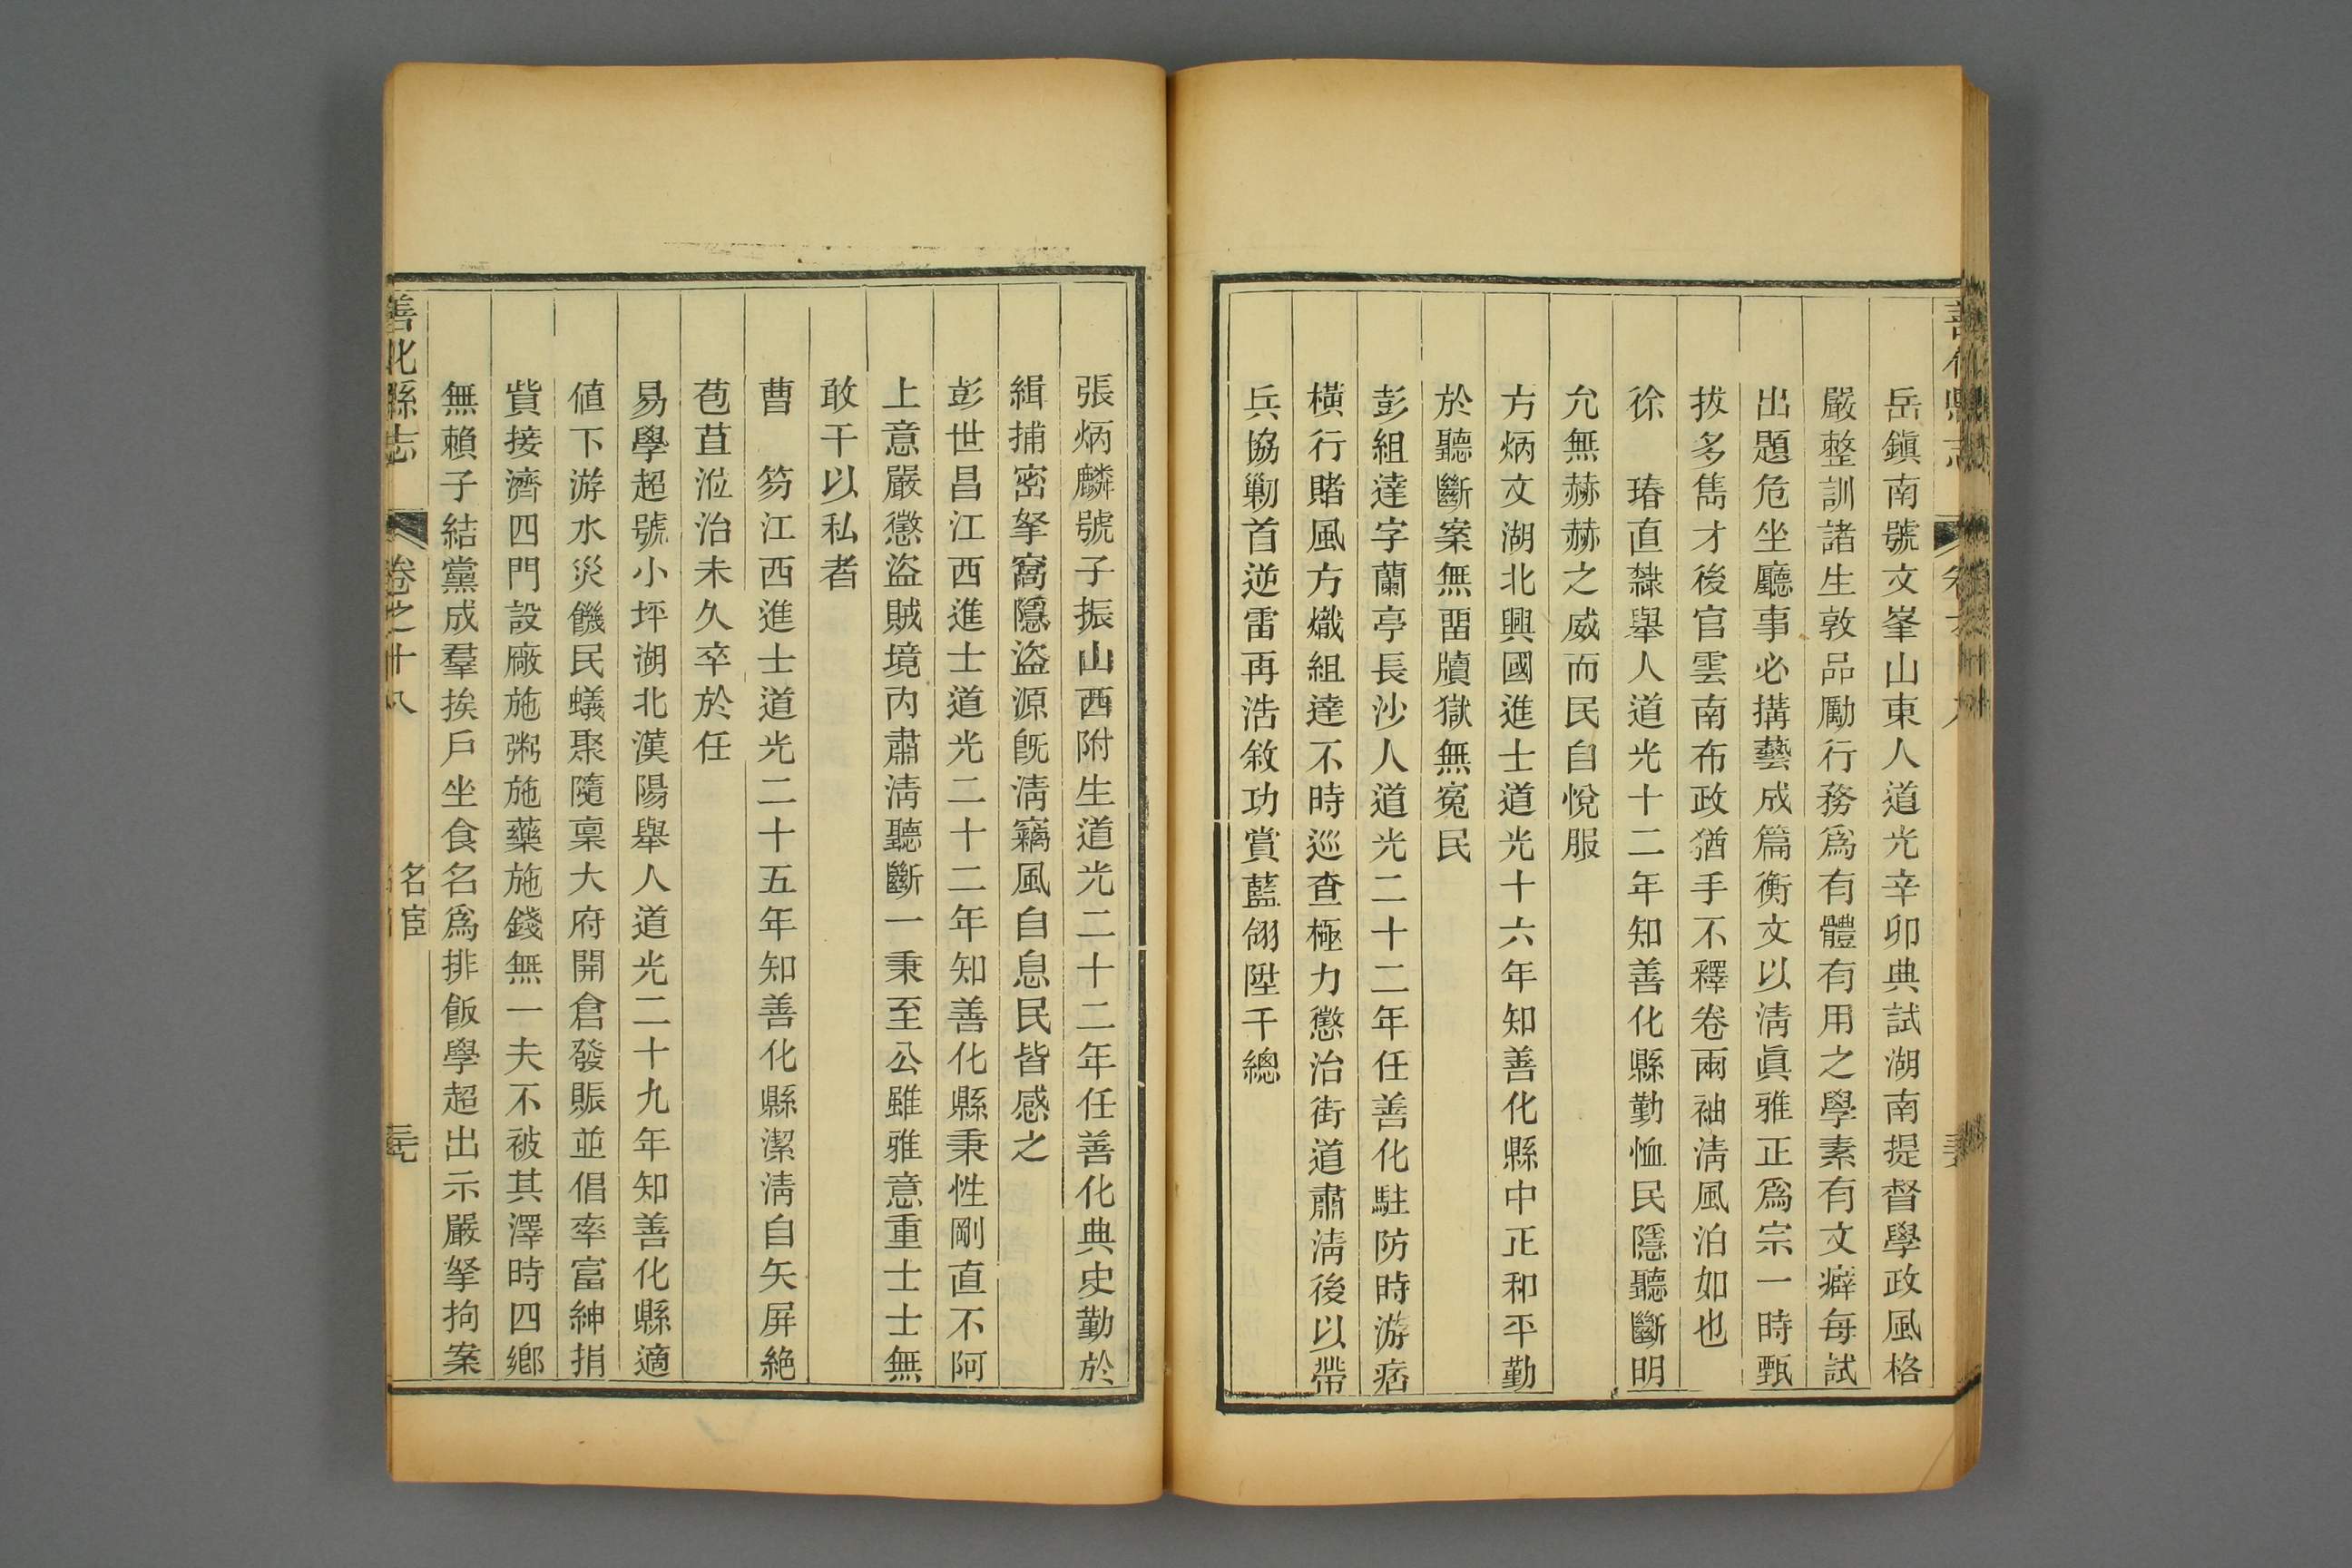 岳鎭南號文峯山東人道光辛卯典試湖南提督學政風格
嚴整訓諸生敦品勵行務爲有體有用之學素有文癖每試
出題危坐廳事必搆藝成篇衡文以淸眞雅正爲宗一時甄
拔多雋才後官雲南布政猶手不釋卷兩袖淸風泊如也
徐　瑃直隸舉人道光十二年知善化縣勤恤民隱聽斷明
允無赫赫之威而民自悅服
方炳文湖北興國進士道光十六年知善化縣中正和平勤
於聽斷案無畱牘獄無寃民
彭組達字蘭亭長沙人道光二十二年任善化駐防時游痞
橫行賭風方熾組達不時巡查極力懲治街道肅淸後以帶
兵協勦首逆雷再浩敘功賞藍翎陞千總
張炳麟號子振山西附生道光二十二年任善化典史勤於
緝捕密拏窩隱盜源旣淸竊風自息民皆感之
彭世昌江西進士道光二十二年知善化縣秉性剛直不阿
上意嚴懲盜賊境內肅淸聽斷一秉至公雖雅意重士士無
敢干以私者
曹　笏江西進士道光二十五年知善化縣潔淸自矢屏絕
苞苴涖治未久卒於任
易學超號小坪湖北漢陽舉人道光二十九年知善化縣適
値下游水災饑民蟻聚隨稟大府開倉發賑並倡率富紳捐
貲接濟四門設廠施粥施藥施錢無一夫不被其澤時四鄉
無賴子結黨成羣挨戶坐食名爲排飯學超出示嚴拏拘案
善化縣志
卷之十八
名宦